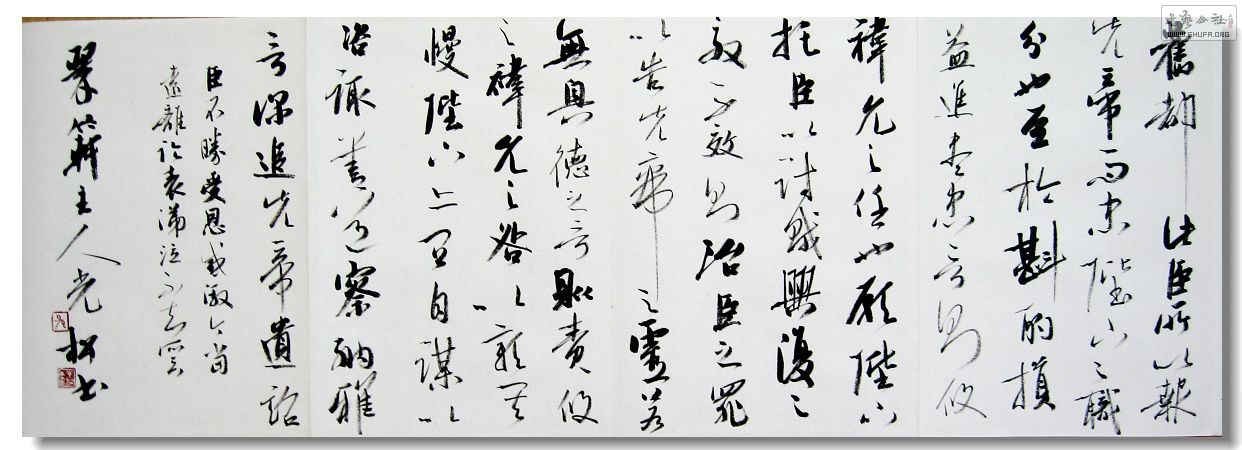 舊都此臣所以報
先帝而忠陛下之職
分也至於斟酌損
益進盡忠言則攸
褘允之任也願陛下
托臣以討賊興復之
效不效則治臣之罪
以告先帝之靈若
無興德之言則責攸
之褘允之咎以彰其
慢陛下亦宜自謀以
咨諏善道察納雅
言深追先帝遺詔
臣不勝受恩感激今當
遠離臨表涕泣不知云
翠竹軒主人光松書
WWW.SHUFA.ORG